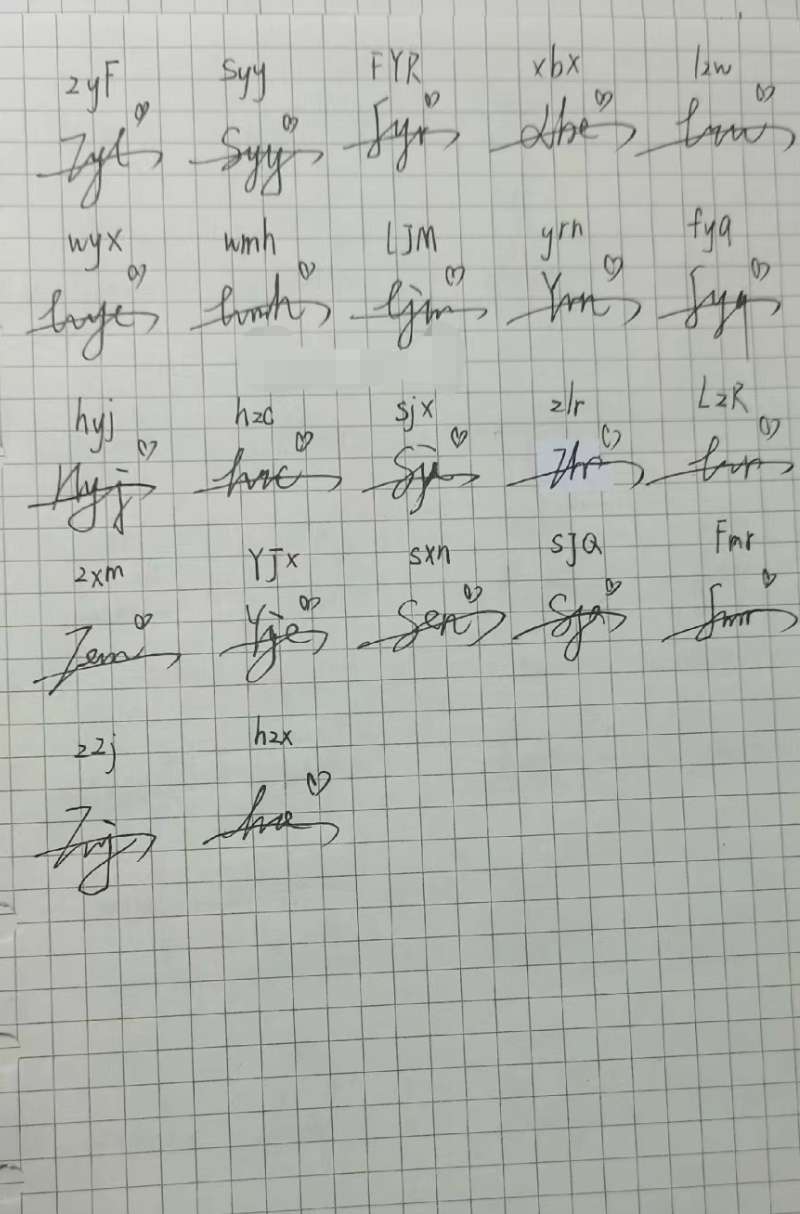 zyF syy FYR xbx lzw
Zyf Syy fyr xbx lzw
wyx wmh LJM yrn fyq
wyx wmh ljm Yrn fyq
hyj hzc sjx zlr LzR
Hyj hzc Sjx Zlr lzr
zxm YJx sxn SJQ Fmr
Zxm Yjx Sxn Sjq fmr
zzj hzx
Zzj hzx